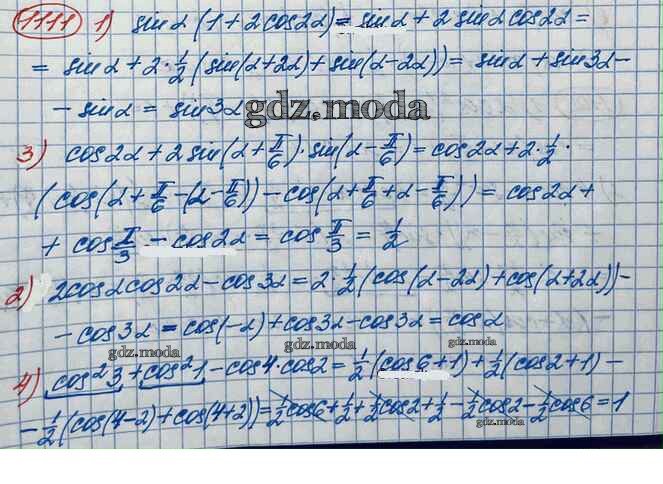 1111 1) sin α (1 + 2 cos 2α) = sin α + 2 sin α cos 2α =
= sin α + 2 · 1/2 (sin(α + 2α) + sin(α - 2α)) = sin α + sin 3α -
- sin α = sin 3α
gdz.moda
3) cos 2α + 2 sin(α + π/6) · sin(α - π/6) = cos 2α + 2 · 1/2 ·
(cos(α + π/6 - (α - π/6)) - cos(α + π/6 + α - π/6)) = cos 2α +
+ cos π/3 - cos 2α = cos π/3 = 1/2
2) 2 cos α cos 2α - cos 3α = 2 · 1/2 (cos(α - 2α) + cos(α + 2α)) -
- cos 3α = cos(-α) + cos 3α - cos 3α = cos α
gdz.moda gdz.moda gdz.moda
4) cos² 3 + cos² 1 - cos 4 · cos 2 = 1/2 (cos 6 + 1) + 1/2 (cos 2 + 1) -
- 1/2 (cos(4 - 2) + cos(4 + 2)) = 1/2 cos 6 + 1/2 + 1/2 cos 2 + 1/2 - 1/2 cos 2 - 1/2 cos 6 = 1
gdz.moda